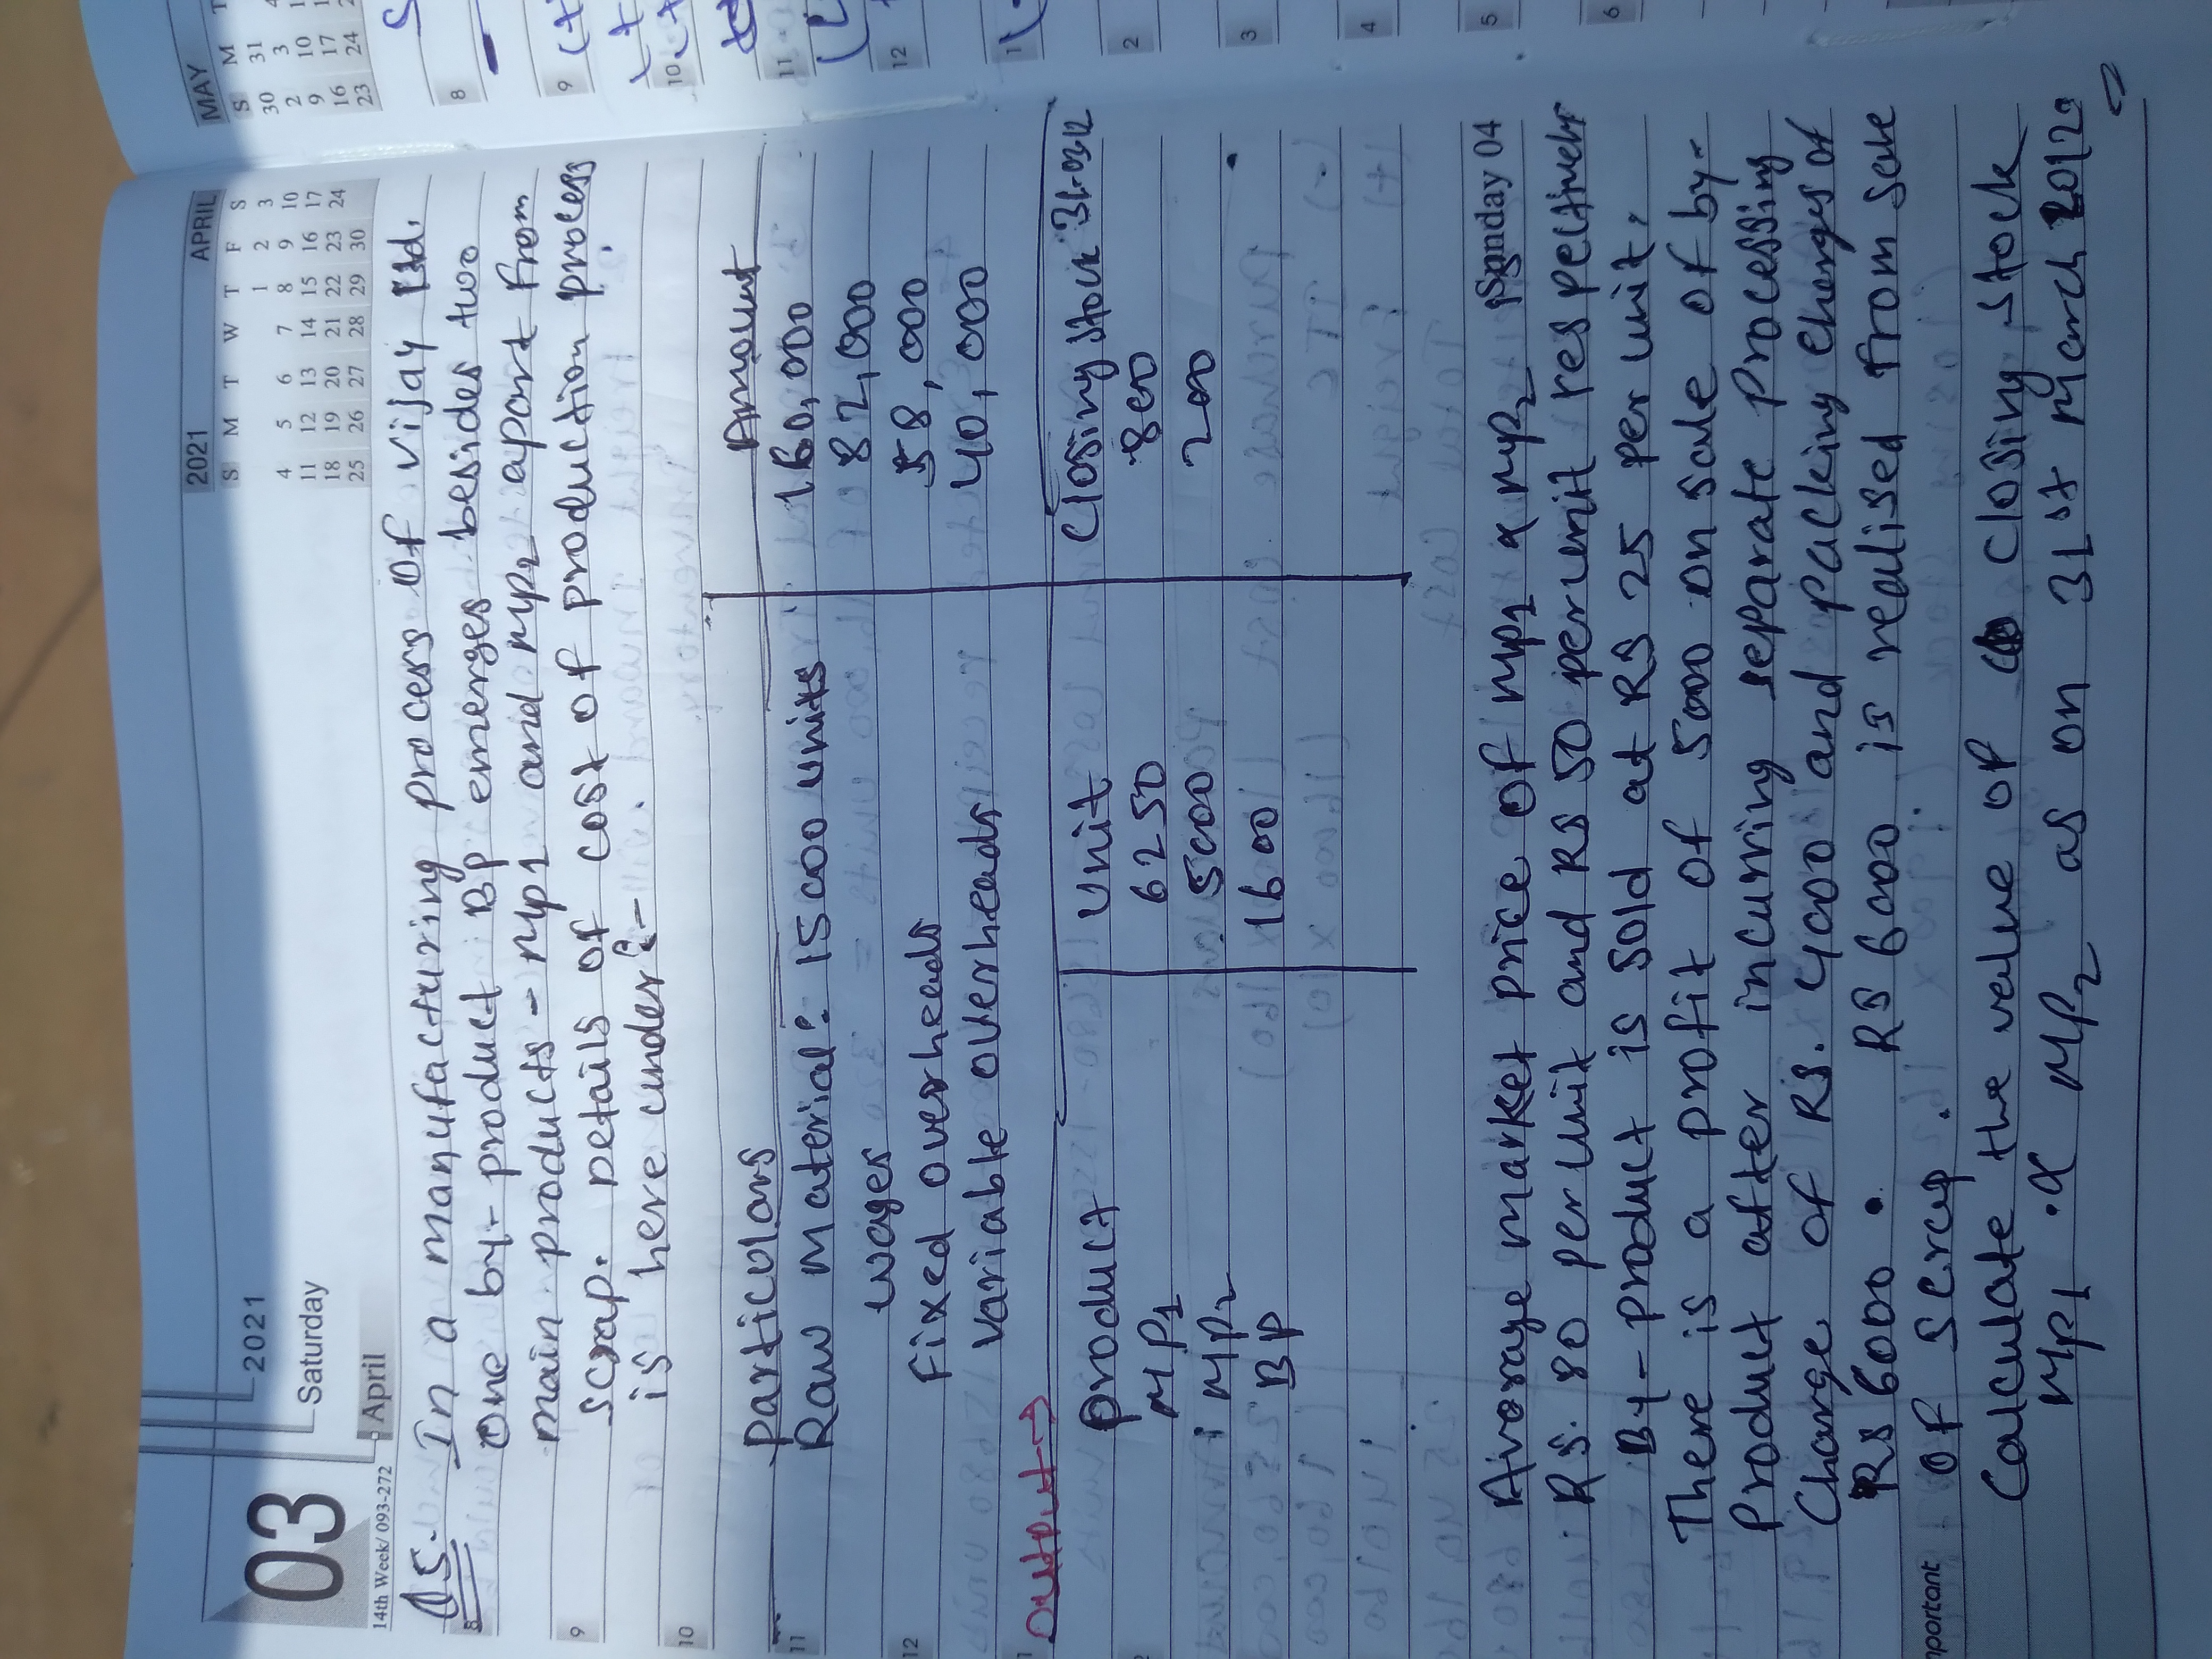 2021
03
Saturday
April
14th Week/ 093-272
2021 APRIL
S M T W T F S
1 2 3
4 5 6 7 8 9 10
11 12 13 14 15 16 17
18 19 20 21 22 23 24
25 26 27 28 29 30
Q5. In a manufacturing process of vijay Ltd.
One by- product BP emerges besides two
main products - mp1 and mp2 apart from
scrap. Details of cost of production process
is here under:-
Particulars Amount
Raw material: 15000 units 1,60,000
wages 82,000
Fixed overheads 58,000
Variable overheads 40,000
Output→
Product Unit Closing stock 31-03-12
MP1 6250 800
MP2 5000 200
BP 1600
Sunday 04
Average market price of mp1 & mp2 is
RS. 80 per unit and RS 50 per unit respectively
By- product is sold at RS 25 per unit,
There is a profit of 5000 on sale of by-
Product after incurring separate processing
Charge of RS. 4000 and packing charges of
RS 6000. RS 6000 is realised from sale
of scrap.
Calculate the value of closing stock
MP1 & MP2 as on 31st March 2012
8
9
10
11
12
mportant
MAY
S M
30 31
2 3
9 10
16 17
23 24
8
9
10
11
12
1
2
3
4
5
6